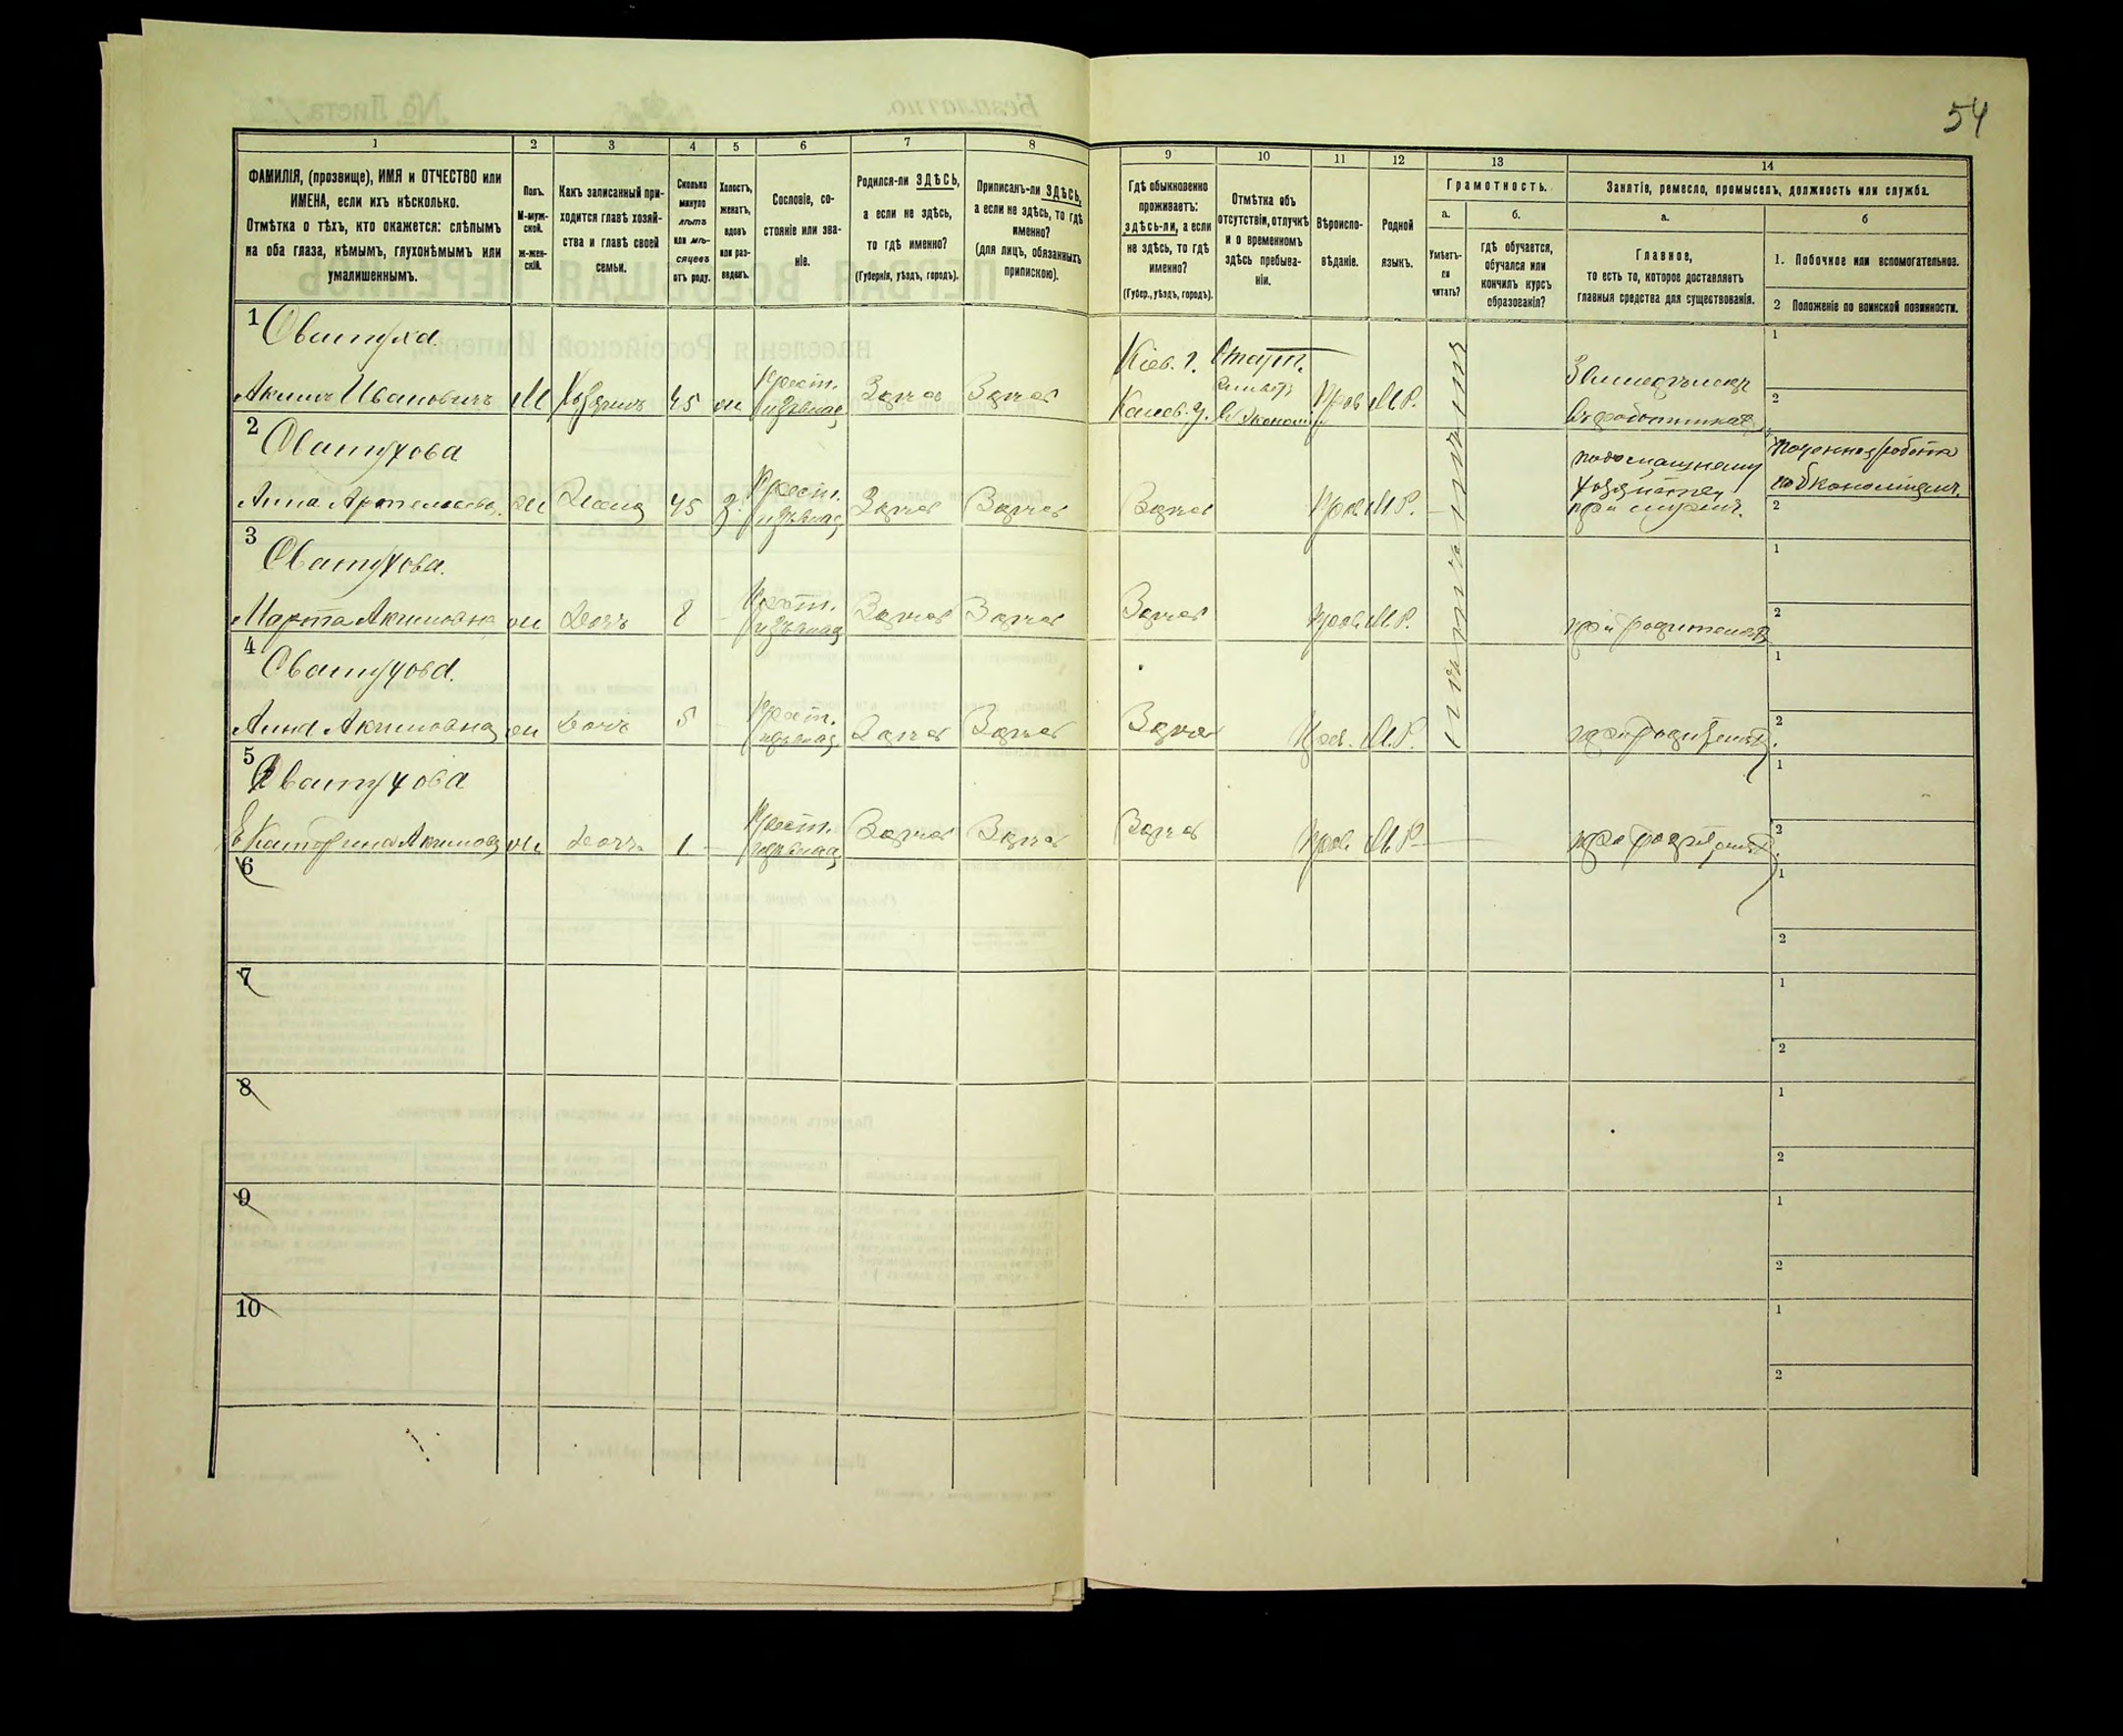 54
1
2
3
4
5
6
7
8
9
10
11
12
13
14
ФАМИЛІЯ, (прозвище), ИМЯ и ОТЧЕСТВО или
ИМЕНА, если ихъ нѣсколько.
Отмѣтка о тѣхъ, кто окажется: слѣпымъ
на оба глаза, нѣмымъ, глухонѣмымъ или
умалишеннымъ.
Полъ.
М-муж-
ской.
ж-жен-
скій.
Какъ записанный при-
ходится главѣ хозяй-
ства и главѣ своей
семьи.
Сколько
минуло
лѣтъ
или мѣ-
сяцевъ
отъ роду.
Холостъ,
женатъ,
вдовъ
или раз-
веденъ.
Сословіе, со-
стояніе или зва-
ніе.
Родился-ли ЗДѢСЬ,
а если не здѣсь,
то гдѣ именно?
(Губернія, уѣздъ, городъ).
Приписанъ-ли ЗДѢСЬ,
а если не здѣсь, то гдѣ
именно?
(для лицъ, обязанныхъ
припискою).
Гдѣ обыкновенно
проживаетъ:
здѣсь-ли, а если
не здѣсь, то гдѣ
именно?
(Губер., уѣздъ, городъ).
Отмѣтка объ
отсутствіи, отлучкѣ
и о временномъ
здѣсь пребыва-
ніи.
Вѣроиспо-
вѣданіе.
Родной
языкъ.
Грамотность.
а.
б.
Умѣетъ-
ли
читать?
гдѣ обучается,
обучался или
кончилъ курсъ
образованія?
Занятіе, ремесло, промыселъ, должность или служба.
а.
б
Главное,
то есть то, которое доставляетъ
главныя средства для существованія.
1. Побочное или вспомогательное.
2 Положеніе по воинской повинности.
1 Сватуха
Акимъ Ивановичъ М Хозяинъ 45 ж Крест. Здѣсь Здѣсь Кіев. г. Канев. у. Прав М.Р.
1
2
2 Сватухова
Анна ж Жена 45 З. Крест. Здѣсь Здѣсь Здѣсь Прав М.Р.
2
3 Сватухова.
Марта Акимовна ж Дочь 8 Крест. Здѣсь Здѣсь Здѣсь Прав М.Р. при родителяхъ
1
2
4 Сватухова.
Анна Акимовна ж Дочь 5 Крест. Здѣсь Здѣсь Здѣсь Прав. М.Р. при родителяхъ
1
2
5 Сватухова
Екатерина Акимов ж Дочь 1 Крест. Здѣсь Здѣсь Здѣсь Прав. М.Р. при родителяхъ
1
2
6
1
2
7
1
2
8
1
2
9
1
2
10
1
2